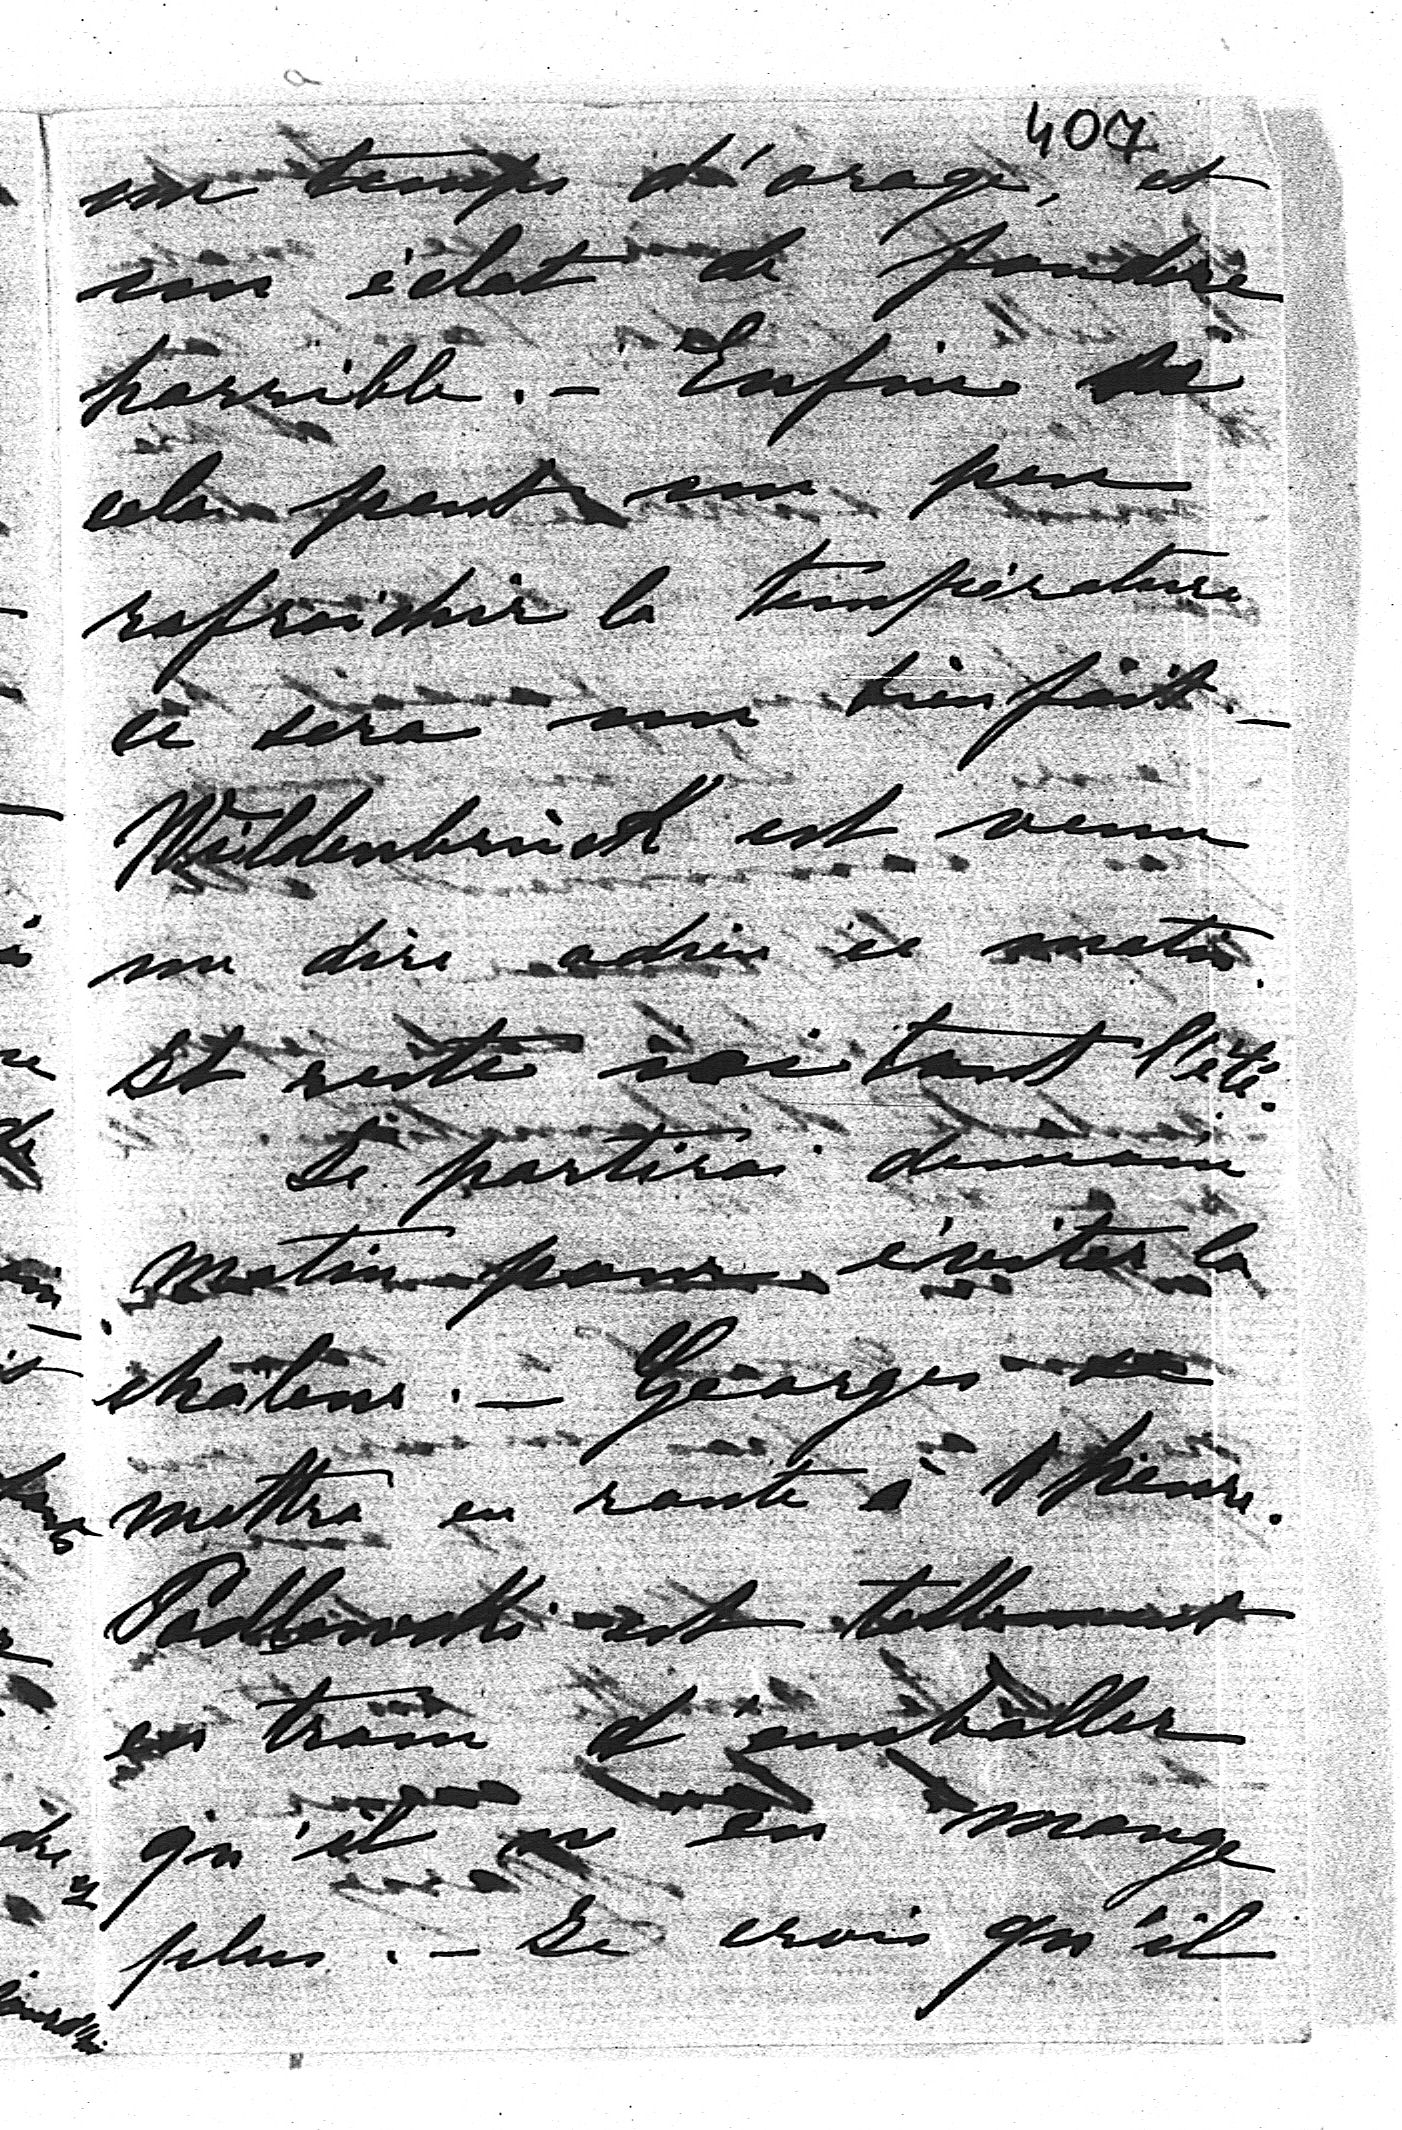 407
un temps d'orage, et
un éclat de foudre
horrible. - Enfin si
cela peut un peu
rafraichir la température
ce sera un bienfait -
Wildenbruck est venu
me dire adieu ce matin.
Il reste ici tout l'été.
Je partirai demain
matin pour éviter la
chaleur. - Georges se
mettra en route à 1 heure.
Padlewski est tellement
en train d'emballer
qu'il ne en mange
plus. - Je crois qu'il